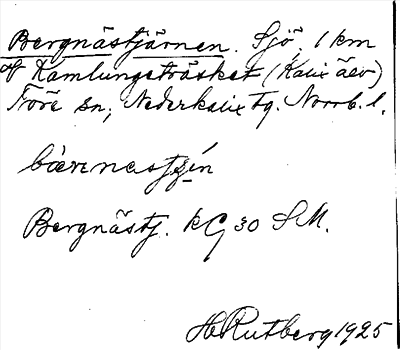 Bergnästjärnen. Sjö, 1 km
af Kamlungeträsket (Kalix älv)
Töre sn; Nederkalix tg. Norrb. l.
bàrenastjẹ́n
Bergnästj. kG 30 SM.
HRutberg 1925